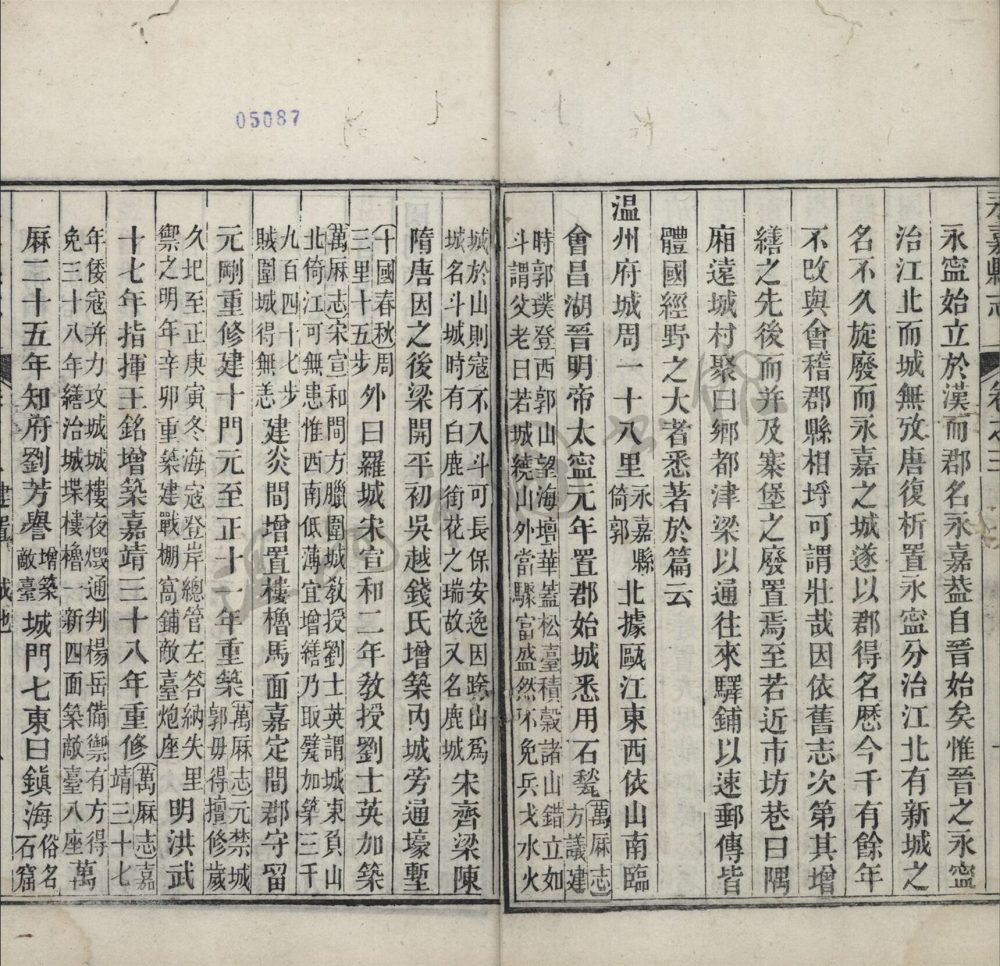 永嘉縣志 卷之三
永寍始立於漢而郡名永嘉葢自晉始矣惟晉之永寍
治江北而城無攷唐復析置永寍分治江北有新城之
名不久旋廢而永嘉之城遂以郡得名歷今千有餘年
不改與會稽郡縣相埒可謂壯哉因依舊志次第其增
繕之先後而并及寨堡之廢置焉至若近市坊巷曰隅
廂遠城村聚曰鄉都津梁以通往來驛鋪以速郵傳皆
體國經野之大者悉著於篇云
温州府城周一十八里永嘉縣倚郭北據甌江東西依山南臨
會昌湖晉明帝太寍元年置郡始城悉用石甃萬厤志方議建
時郭璞登西郭山望海壇華蓋松臺積穀諸山錯立如
斗謂父老曰若城繞山外當驟富盛然不免兵戈水火
城於山則寇不入斗可長保安逸因跨山爲
城名斗城時有白鹿銜花之瑞故又名鹿城宋齊梁陳
隋唐因之後梁開平初吳越錢氏增築內城旁通壕塹
十國春秋周
三里十五步外曰羅城宋宣和二年教授劉士英加築
萬厤志宋宣和間方臘圍城教授劉士英謂城東負山
北倚江可無患惟西南低薄宜增繕乃取甓加築三千
九百四十七步
賊圍城得無恙建炎間增置樓櫓馬面嘉定間郡守留
元剛重修建十門元至正十一年重築萬厤志元禁城
郭毋得擅修歲
久圮至正庚寅冬海寇登岸總管左答納失里
禦之明年辛卯重築建戰棚窩鋪敵臺炮座明洪武
十七年指揮王銘增築嘉靖三十八年重修萬厤志嘉
靖三十七
年倭寇并力攻城城樓夜燬通判楊岳備禦有方得
免三十八年繕治城堞樓櫓一新四面築敵臺八座萬
厤二十五年知府劉芳譽增築敵臺城門七東曰鎭海俗名石窟
05087